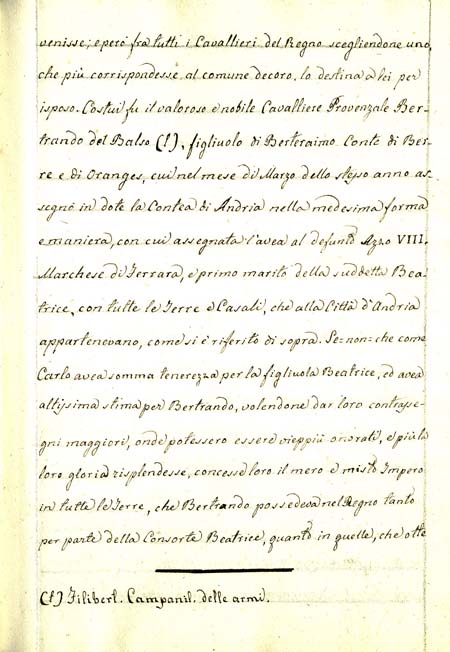 venisse; e però fra tutti i Cavallieri del Regno scegliendone uno,
che più corrispondesse al comune decoro, lo destina a lei per
isposo. Costui fu il valoroso e nobile Cavalliere Provenzale Ber-
trando del Balso (f), figliuolo di Berteraimo Conte di Ber-
re e di Oranges, cui nel mese di Marzo dello stesso anno as-
segnò in dote la Contea di Andria nella medesima forma
e maniera, con cui assegnata l'avea al defunto Azzo VIII.
Marchese di Ferrara, e primo marito della suddetta Bea-
trice, con tutte le Terre e Casali, che alla Città d'Andria
appartenevano, come si è riferito di sopra. Se=non=che come
Carlo avea somma tenerezza per la figliuola Beatrice, ed avea
altissima stima per Bertrando, volendone dar loro contrasse-
gni maggiori, onde potessero essere vieppiù onorati, e più la
loro gloria risplendesse, concesse loro il mero e misto Impero
in tutte le Terre, che Bertrando possedeva nel Regno tanto
per parte della Consorte Beatrice, quanto in quelle, che otte
(f) Filibert. Campanil. delle armi.